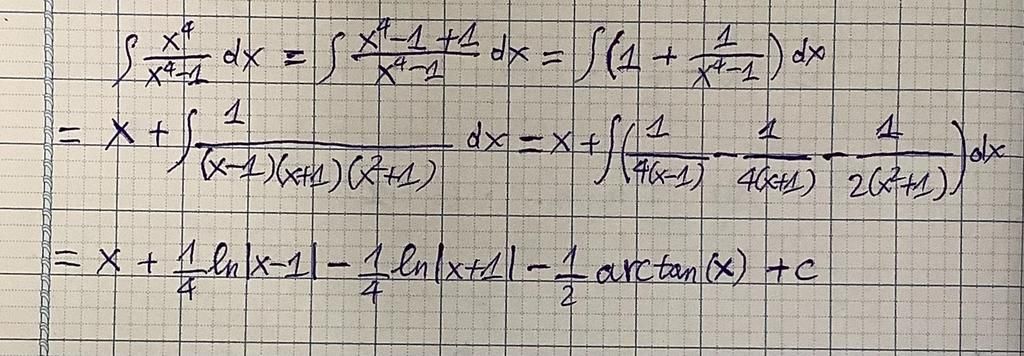 ∫ x⁴/(x⁴-1) dx = ∫ (x⁴-1+1)/(x⁴-1) dx = ∫(1 + 1/(x⁴-1)) dx
= x + ∫ 1/((x-1)(x+1)(x²+1)) dx = x + ∫(1/(4(x-1)) - 1/(4(x+1)) - 1/(2(x²+1))) dx
= x + 1/4 ln|x-1| - 1/4 ln|x+1| - 1/2 arctan(x) + c